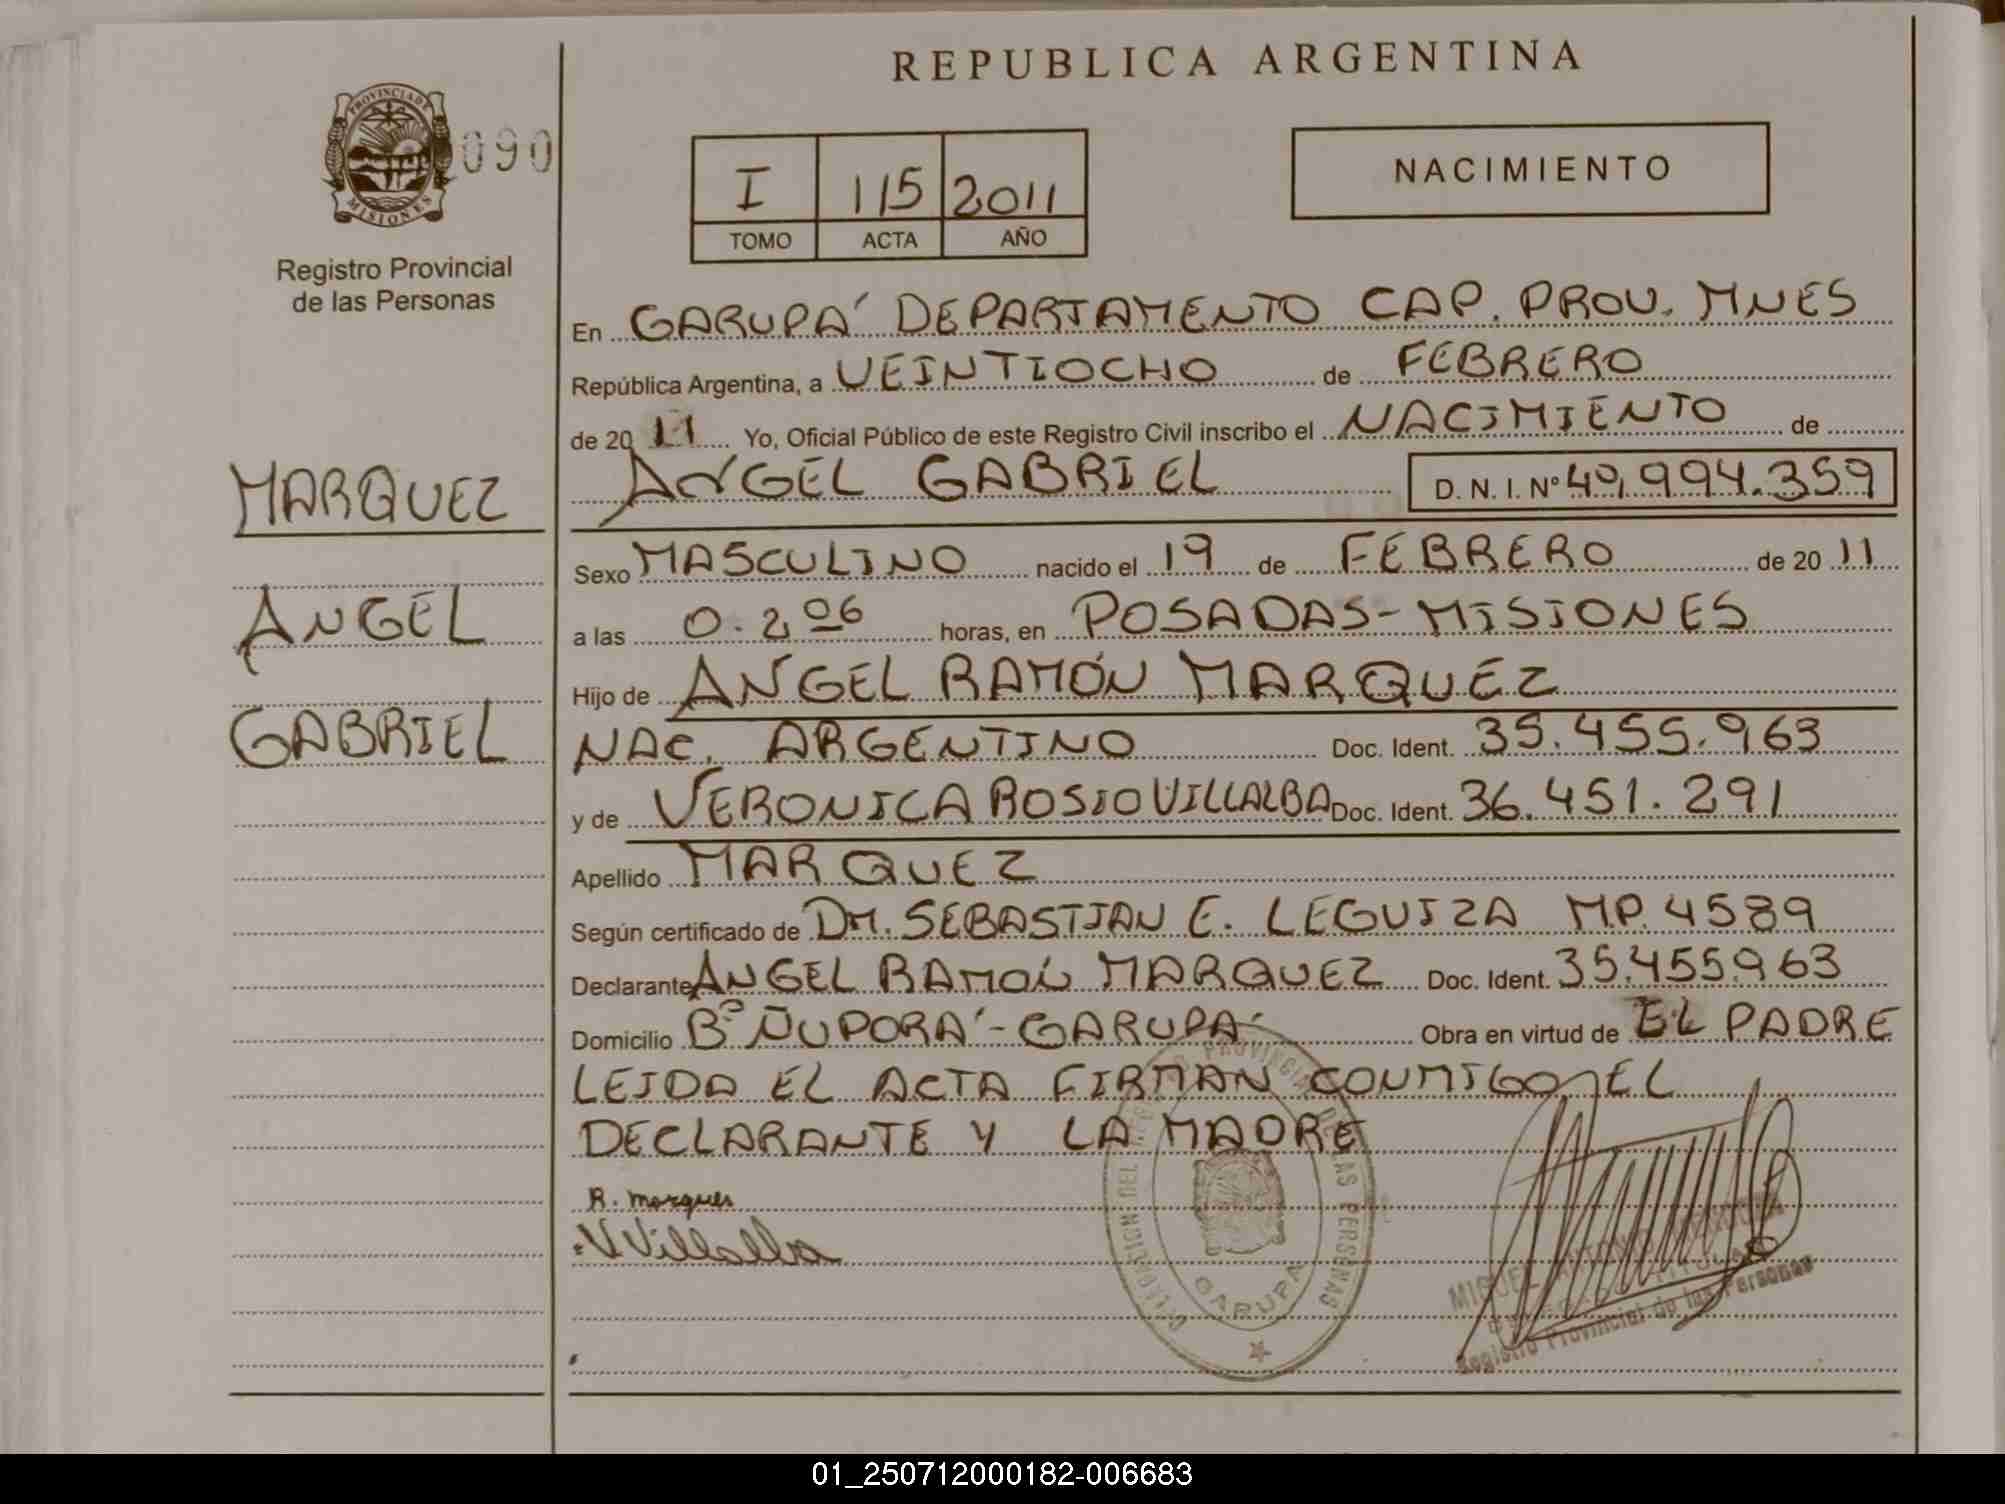 REPUBLICA ARGENTINA
PROVINCIA DE
MISIONES
090
Registro Provincial
de las Personas
I 115 2011
TOMO ACTA AÑO
NACIMIENTO
En GARUPA´ DEPARTAMENTO CAP. PROV. MNES
República Argentina, a VEINTIOCHO de FEBRERO
de 20 11 Yo, Oficial Público de este Registro Civil inscribo el NACIMIENTO de
ANGEL GABRIEL D. N. I. Nº 40.994.359
MARQUEZ
ANGEL
GABRIEL
Sexo MASCULINO nacido el 19 de FEBRERO de 20 11
a las 0.2,06 horas, en POSADAS-MISIONES
Hijo de ANGEL RAMÓN MARQUEZ
NAC. ARGENTINO Doc. Ident. 35.455.963
y de VERONICA ROSIO VILLALBA Doc. Ident. 36.451.291
Apellido MARQUEZ
Según certificado de DM. SEBASTIAN E. LEGUIZA M.P. 4589
Declarante ANGEL RAMÓN MARQUEZ Doc. Ident. 35.455.963
Domicilio Bº ÑUPORA´-GARUPA´ Obra en virtud de EL PADRE
LEIDA EL ACTA FIRMAN CONMIGO EL
DECLARANTE Y LA MADRE
R. marques
V Villalba
PROVINCIAL DE LAS PERSONAS
GARUPA
MIGUEL ANTONIO
Registro Provincial de las Personas
01_250712000182-006683